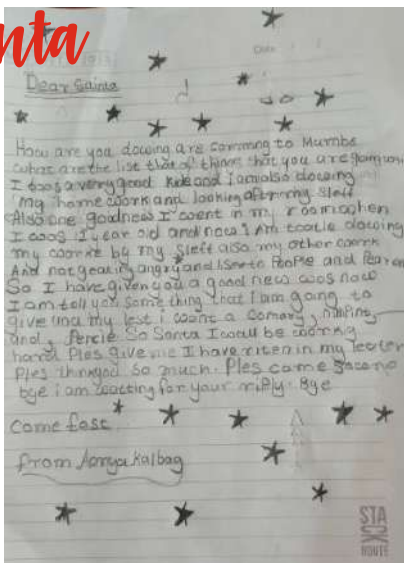 nta
Date
Dear Sainta
How are you dowing are comming to Mumba
what are the list that of things that you are
I woos a very good kide and I am also dowing
my home woork and looking after my sleff
Also one good new I went in my room when
I woos 11 year old and now I Am tootle dowing
my woorke by my sleff also my other woork
And not geating angry and lisen to People and
So I have given you a good new woos now
I am tell you some thing that I am gang to
give you my lest i want a
and, Pencle So Santa I woall be woorking
harred Ples give me I have riten in my leeter
Ples thinkyou so much. Ples come
bye i am waetting for your riply. Bye
Come fast
From Aanya Kalbag
STA
ROUTE